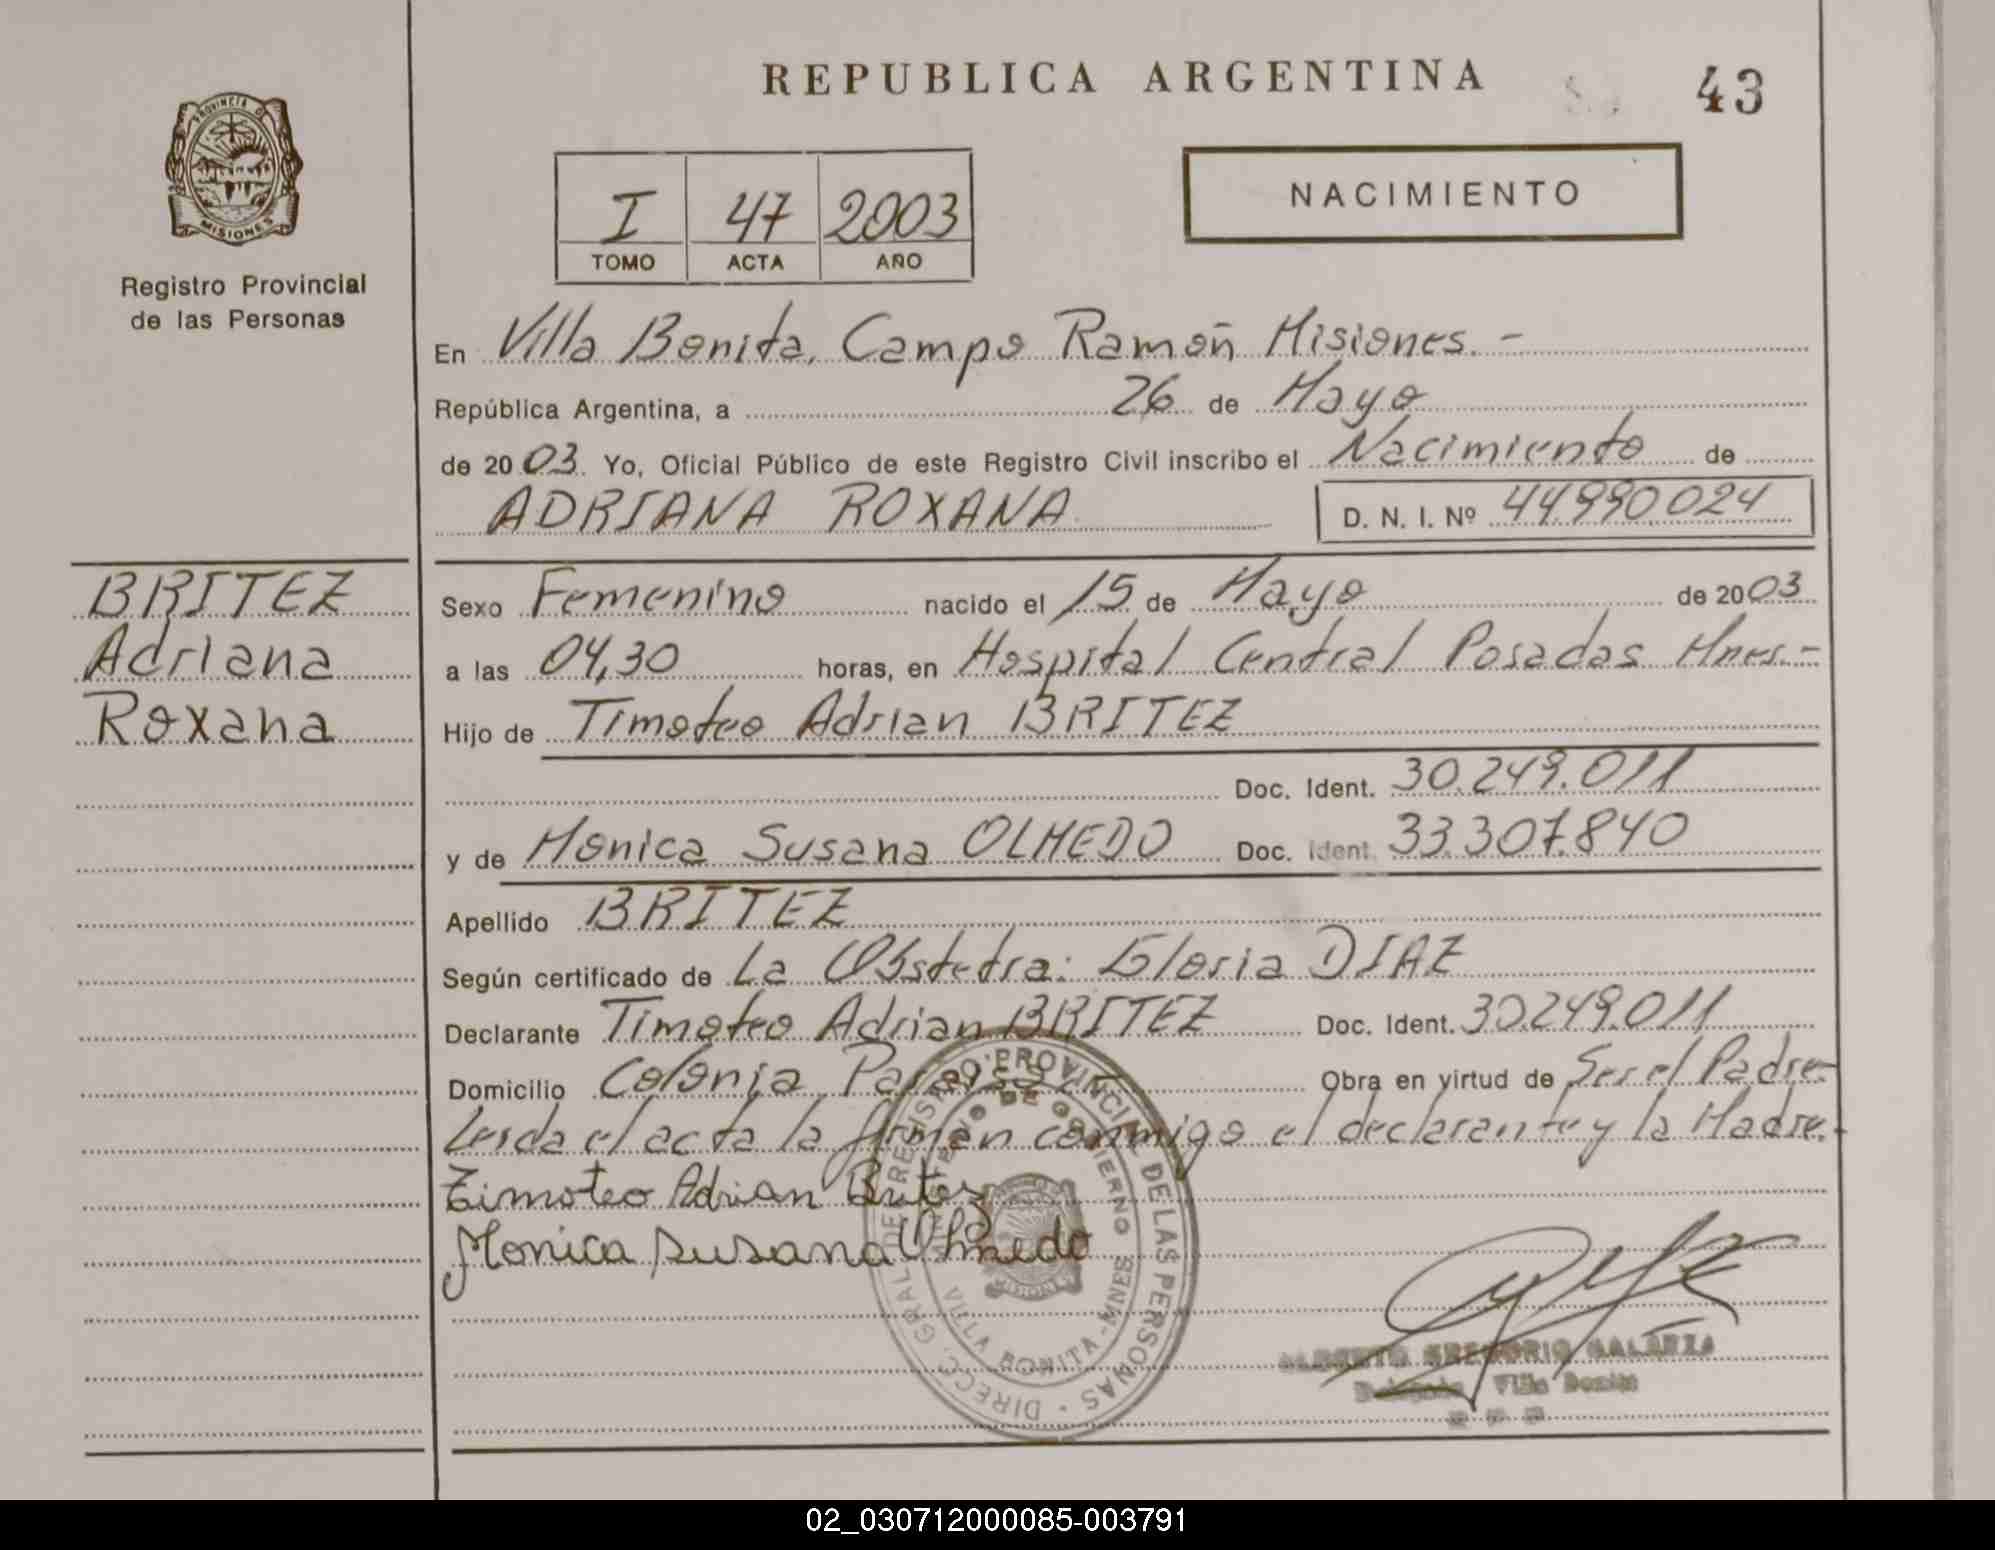 REPUBLICA ARGENTINA
43
PROVINCIA D
MISIONES
Registro Provincial
de las Personas
I 47 2003
TOMO ACTA AÑO
NACIMIENTO
En Villa Bonita, Campo Ramón Misiones. -
República Argentina, a 26 de Mayo
de 2003. Yo, Oficial Público de este Registro Civil inscribo el Nacimiento de
ADRIANA ROXANA D. N. I. Nº 44990024
BRITEZ
Adriana
Roxana
Sexo Femenino nacido el 15 de Mayo de 2003
a las 04,30 horas, en Hospital Central Posadas Mnes.-
Hijo de Timoteo Adrian BRITEZ
Doc. Ident. 30.249.011
y de Monica Susana OLMEDO Doc. Ident. 33.307.840
Apellido BRITEZ
Según certificado de La Obstetra: Gloria DIAZ
Declarante Timoteo Adrian BRITEZ Doc. Ident. 30.249.011
Domicilio Colonia Obra en virtud de Ser el Padre-
Leida el acta la firman conmigo el declarante y la Madre.-
Timoteo Adrian Britez
Monica Susana Olmedo
DIRECC. GRAL. DE REGISTRO PROVINCIAL DE LAS PERSONAS
MINISTERIO DE GOBIERNO
VILLA BONITA - MNES
MISIONES
ALBERTO GREGORIO GALARZA
Delegado Villa Bonita
02_030712000085-003791